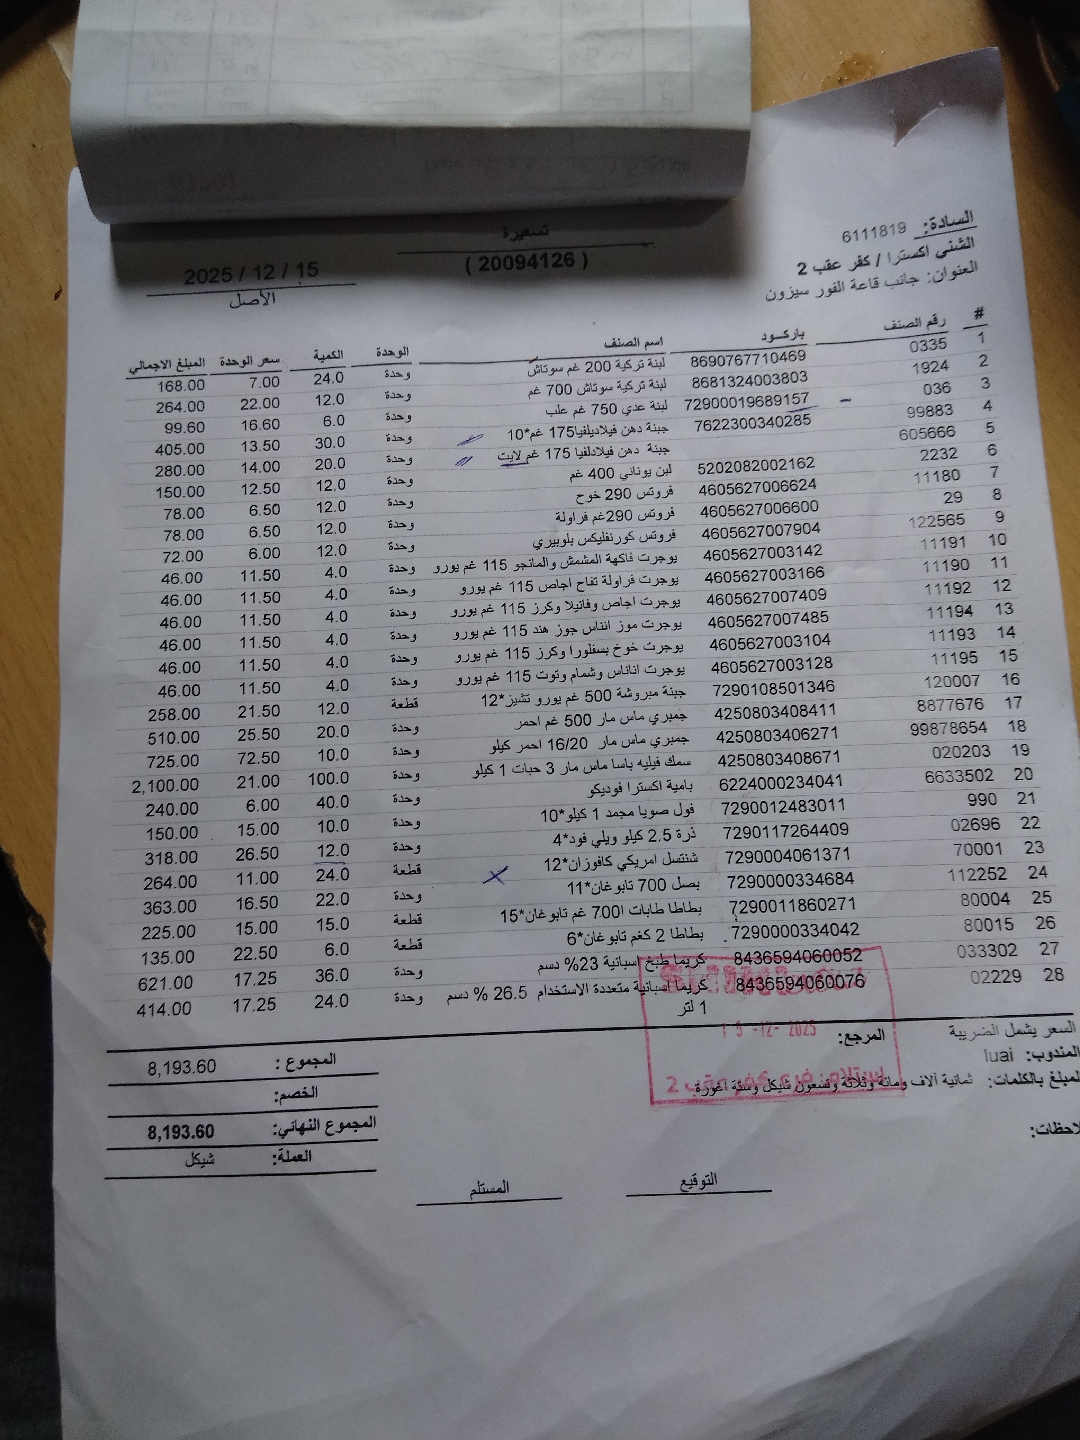 تسعيرة
( 20094126 )
2025 / 12 / 15
الأصل
السادة: 6111819
الشني اكسترا / كفر عقب 2
العنوان: جانب قاعة الفور سيزون
# رقم الصنف باركود اسم الصنف الوحدة الكمية سعر الوحدة المبلغ الاجمالي
1 0335 8690767710469 لبنة تركية 200 غم سوتاش وحدة 24.0 7.00 168.00
2 1924 8681324003803 لبنة تركية سوتاش 700 غم وحدة 12.0 22.00 264.00
3 036 72900019689157 لبنة عدي 750 غم علب وحدة 6.0 16.60 99.60
4 99883 7622300340285 جبنة دهن فيلاديلفيا175 غم*10 وحدة 30.0 13.50 405.00
5 605666 جبنة دهن فيلادلفيا 175 غم لايت وحدة 20.0 14.00 280.00
6 2232 5202082002162 لبن يوناني 400 غم وحدة 12.0 12.50 150.00
7 11180 4605627006624 فروتس 290 خوخ وحدة 12.0 6.50 78.00
8 29 4605627006600 فروتس 290غم فراولة وحدة 12.0 6.50 78.00
9 122565 4605627007904 فروتس كورنفليكس بلوبيري وحدة 12.0 6.00 72.00
10 11191 4605627003142 يوجرت فاكهة المشمش والمانجو 115 غم يورو وحدة 4.0 11.50 46.00
11 11190 4605627003166 يوجرت فراولة تفاح اجاص 115 غم يورو وحدة 4.0 11.50 46.00
12 11192 4605627007409 يوجرت اجاص وفانيلا وكرز 115 غم يورو وحدة 4.0 11.50 46.00
13 11194 4605627007485 يوجرت موز انناس جوز هند 115 غم يورو وحدة 4.0 11.50 46.00
14 11193 4605627003104 يوجرت خوخ بسفلورا وكرز 115 غم يورو وحدة 4.0 11.50 46.00
15 11195 4605627003128 يوجرت اناناس وشمام وتوت 115 غم يورو وحدة 4.0 11.50 46.00
16 120007 7290108501346 جبنة مبروشة 500 غم يورو تشيز*12 قطعة 12.0 21.50 258.00
17 8877676 4250803408411 جمبري ماس مار 500 غم احمر وحدة 20.0 25.50 510.00
18 99878654 4250803406271 جمبري ماس مار 16/20 احمر كيلو وحدة 10.0 72.50 725.00
19 020203 4250803408671 سمك فيليه باسا ماس مار 3 حبات 1 كيلو وحدة 100.0 21.00 2,100.00
20 6633502 6224000234041 بامية اكسترا فوديكو وحدة 40.0 6.00 240.00
21 990 7290012483011 فول صويا مجمد 1 كيلو*10 وحدة 10.0 15.00 150.00
22 02696 7290117264409 ذرة 2.5 كيلو ويلي فود*4 وحدة 12.0 26.50 318.00
23 70001 7290004061371 شنتسل امريكي كافوزان*12 قطعة 24.0 11.00 264.00
24 112252 7290000334684 بصل 700 تابوغان*11 وحدة 22.0 16.50 363.00
25 80004 7290011860271 بطاطا طابات 700ا غم تابوغان*15 قطعة 15.0 15.00 225.00
26 80015 7290000334042 بطاطا 2 كغم تابوغان*6 قطعة 6.0 22.50 135.00
27 033302 8436594060052 كريما طبخ اسبانية 23% دسم وحدة 36.0 17.25 621.00
28 02229 8436594060076 كريما اسبانية متعددة الاستخدام 26.5 % دسم وحدة 24.0 17.25 414.00
1 لتر
السعر يشمل الضريبة
المرجع:
15 -12- 2025
المندوب: luai
لمبلغ بالكلمات: ثمانية آلاف ومائة وثلاثة وتسعون شيكل وستة أغورة
استلام فرع كفر عقب 2
لاحظات:
المجموع : 8,193.60
الخصم:
المجموع النهائي: 8,193.60
العملة: شيكل
التوقيع
المستلم